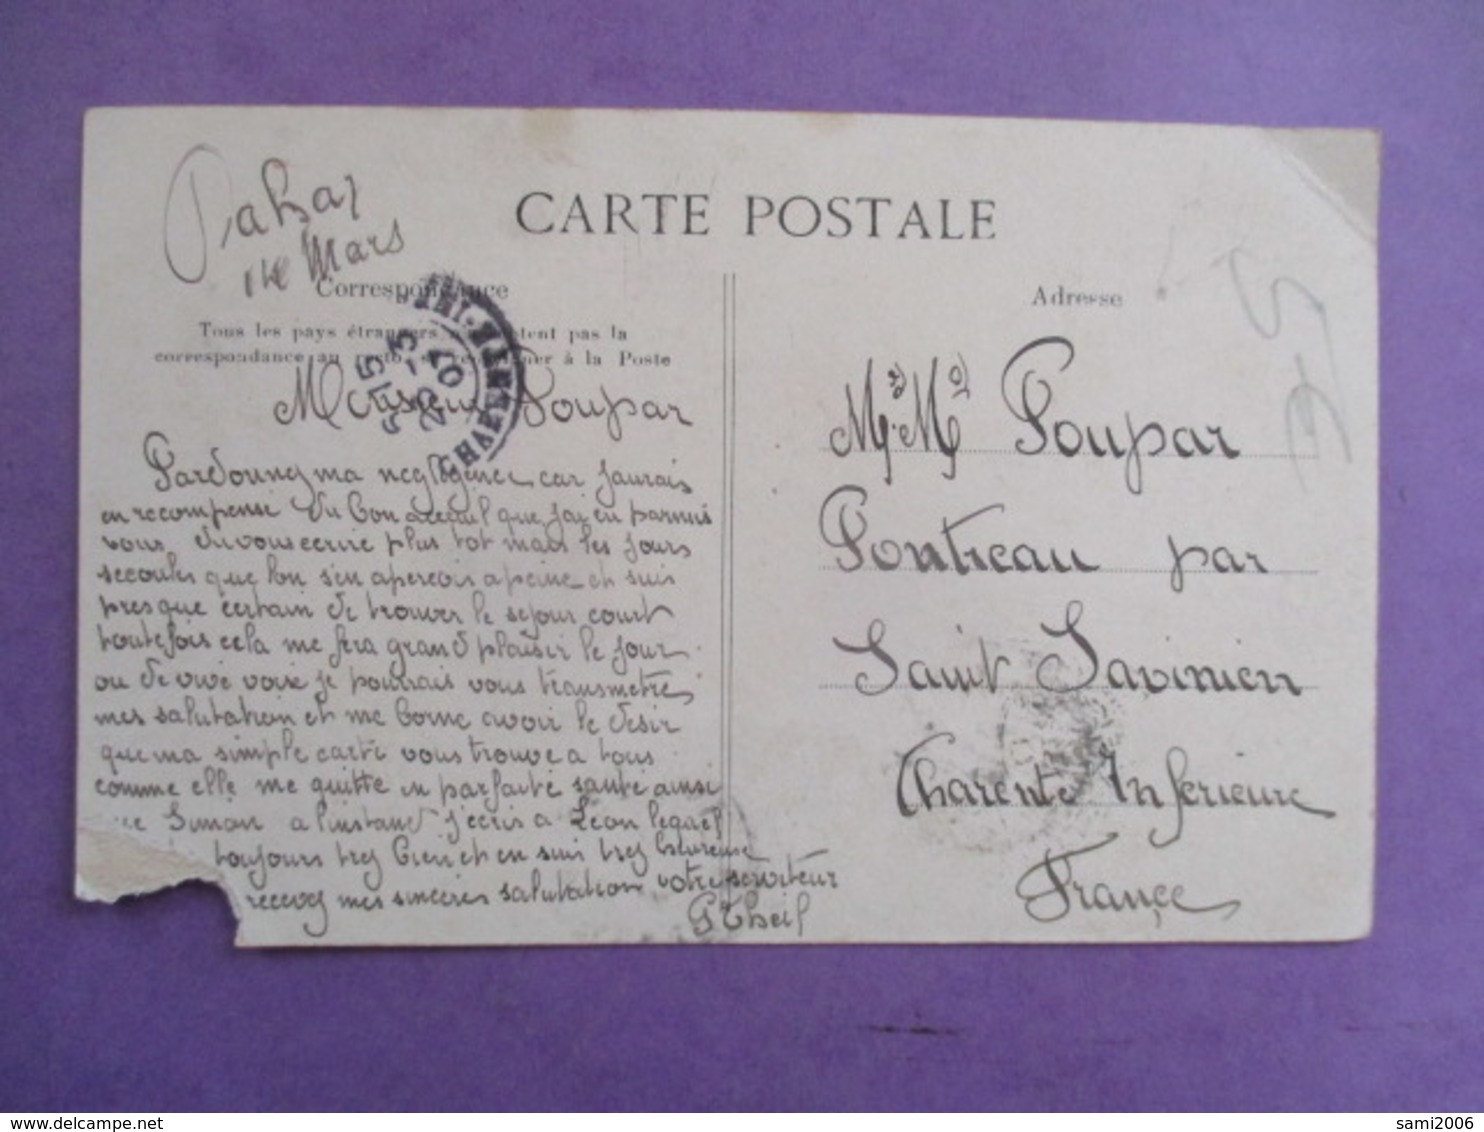 Dakar
14 Mars
CARTE POSTALE
Correspondance
Tous les pays étrangers n'acceptent pas la
correspondance au recto, se renseigner à la Poste
Adresse
Monsieur Poupar
Pardounez ma neglegence car jaurais
en recompense du bon acceuil que jai eu parmis
vous du vous ecrire plus tot mais les jours
secoules que lon s'en apercois a peine et suis
presque certain de trouver le sejour court
toutefois cela me fera grand plaisir le jour
ou de vive voix je pourrais vous transmetre
mes salutation et me borne avoir le desir
que ma simple carte vous trouve a tous
comme elle me quitte en parfaite santé ainsi
que Simon a linstand j'ecris a Léon
toujours trez bien et en suis trez heureuse
recevez mes sincères salutation votre serviteur
Theil
Mr. Md Poupar
Pontreau par
Saint Savinien
Charente Inferieure
France
5 15
20 -3
07
CHARENTE
sami2006
delcampe.net